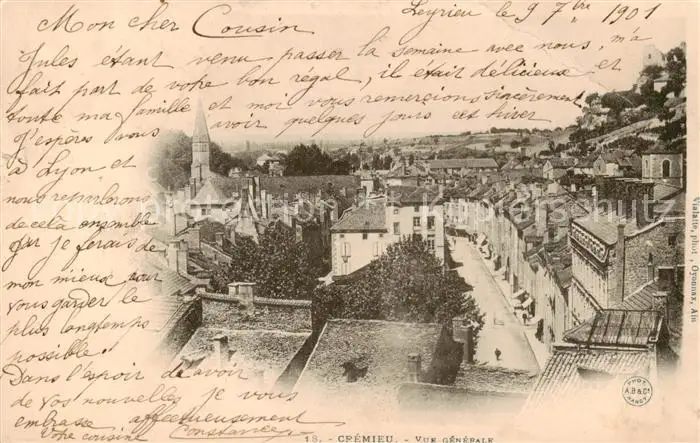 Leyrieu le 9 7bre 1901
Mon cher Cousin
Jules étant venu passer la semaine avec nous, m'a
fait part de votre bon regal, il était délicieux et
toute ma famille et moi vous remercions sincèrement
J'espères vous avoir quelques jours cet hiver
à Lyon et
nous reparlerons
de celà ensemble
Car je ferais de
mon mieux pour
vous garder le
plus longtemps
possible.
Dans l'espoir de avoir
de vos nouvelles je vous
embrasse affectueusement
Votre cousine Constance
Vialatte, phot., Oyonnax, Ain
PHOT
A.B & Cº
NANCY
18. - CRÉMIEU. - VUE GÉNÉRALE